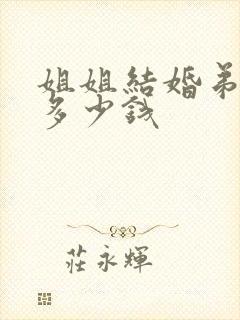 姐姐結婚弟
多少錢
莊永輝